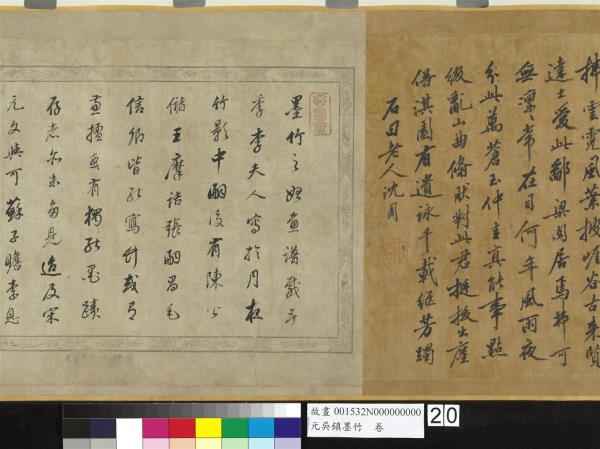 掃雲霓風葉披崖谷古來賢
達士愛此鄰梁園居焉弗可
無凜凜常在目何年風雨夜
分此萬蒼玉仲圭真能事點
綴亂山曲翛肰對此君挺拔出塵
俗淇園有遺詠千載繼芳躅
石田老人沈周
墨竹之始畫譜載五
季李夫人寫於月夜
竹影中嗣後有陳公
儲王摩詰張嗣昌毛
信卿皆能寫竹或有
所擅而有獨能墨蹟
存者亦未多見迨及宋
元文與可蘇子瞻李息
故畫 001532N000000000
元吳鎮墨竹 卷
20